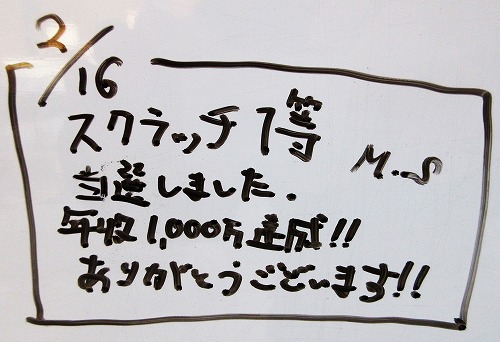 2/16
スクラッチ1等
M.S
当選しました.
年収1,000万達成!!
ありがとうございます!!